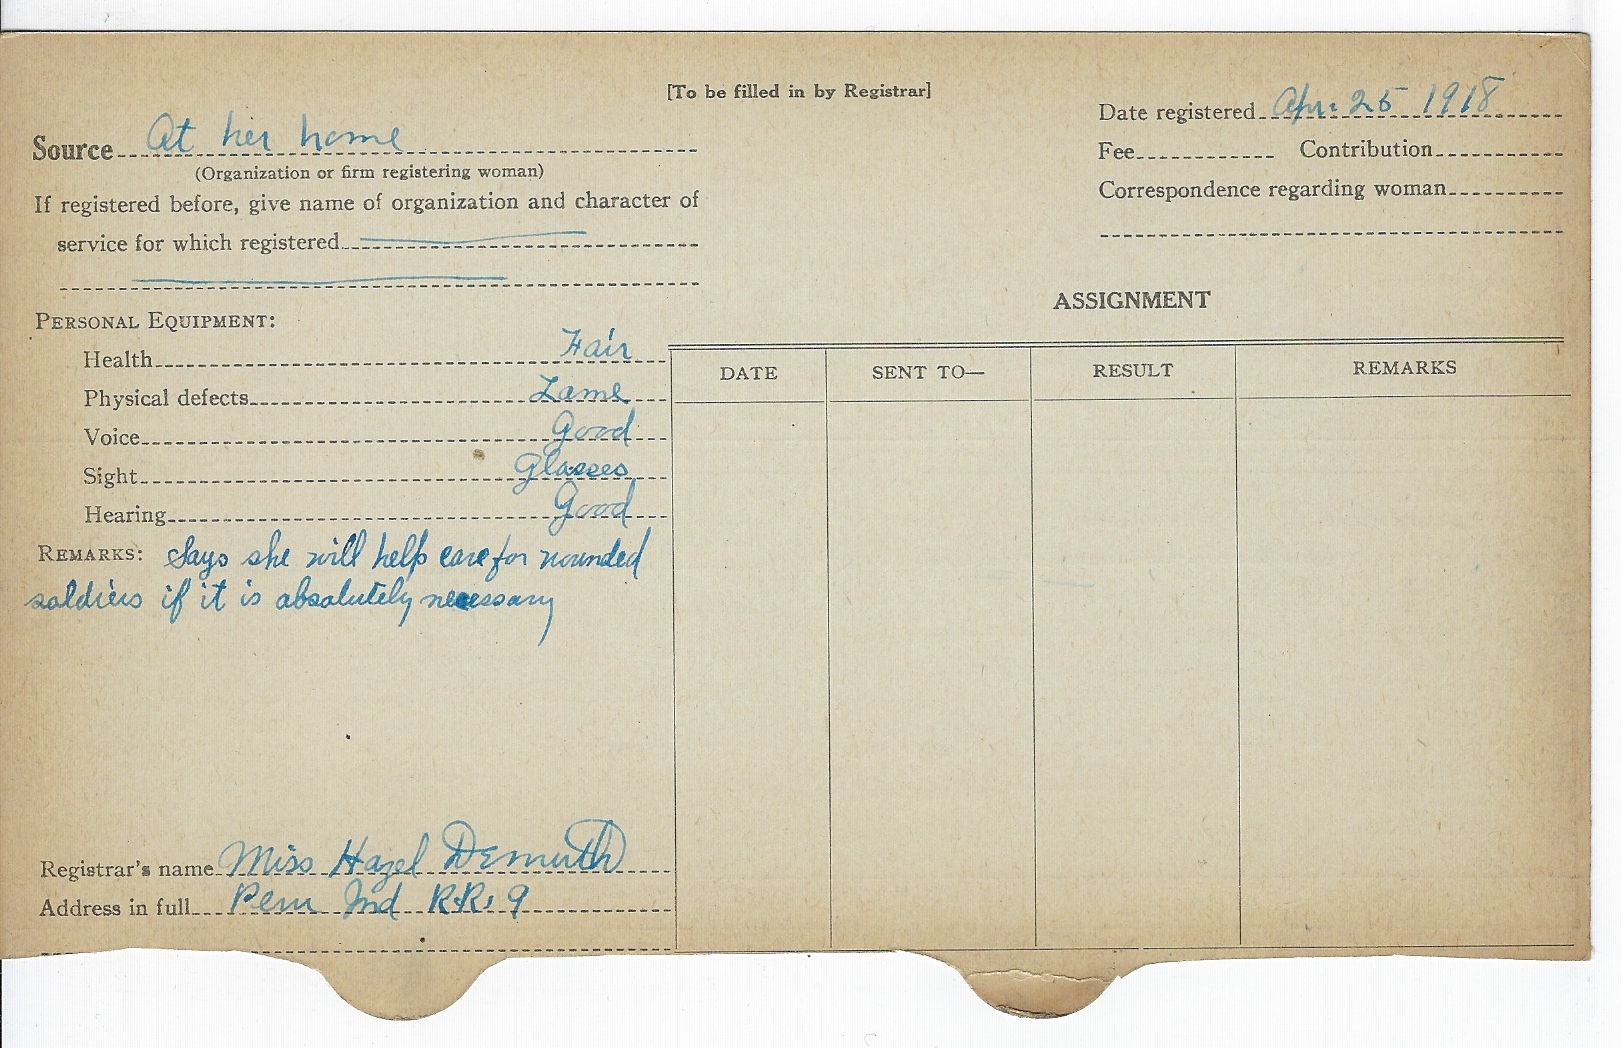 [To be filled in by Registrar]
Source At her home
(Organization or firm registering woman)
If registered before, give name of organization and character of
service for which registered
Date registered Apr. 25 1918
Fee Contribution
Correspondence regarding woman
PERSONAL EQUIPMENT:
Health Fair
Physical defects Lame
Voice Good
Sight Glasses
Hearing Good
REMARKS: Says she will help care for wounded
soldiers if it is absolutely necessary
Registrar's name Miss Hazel Demuth
Address in full Peru Ind R.R. 9
ASSIGNMENT
DATE SENT TO— RESULT REMARKS